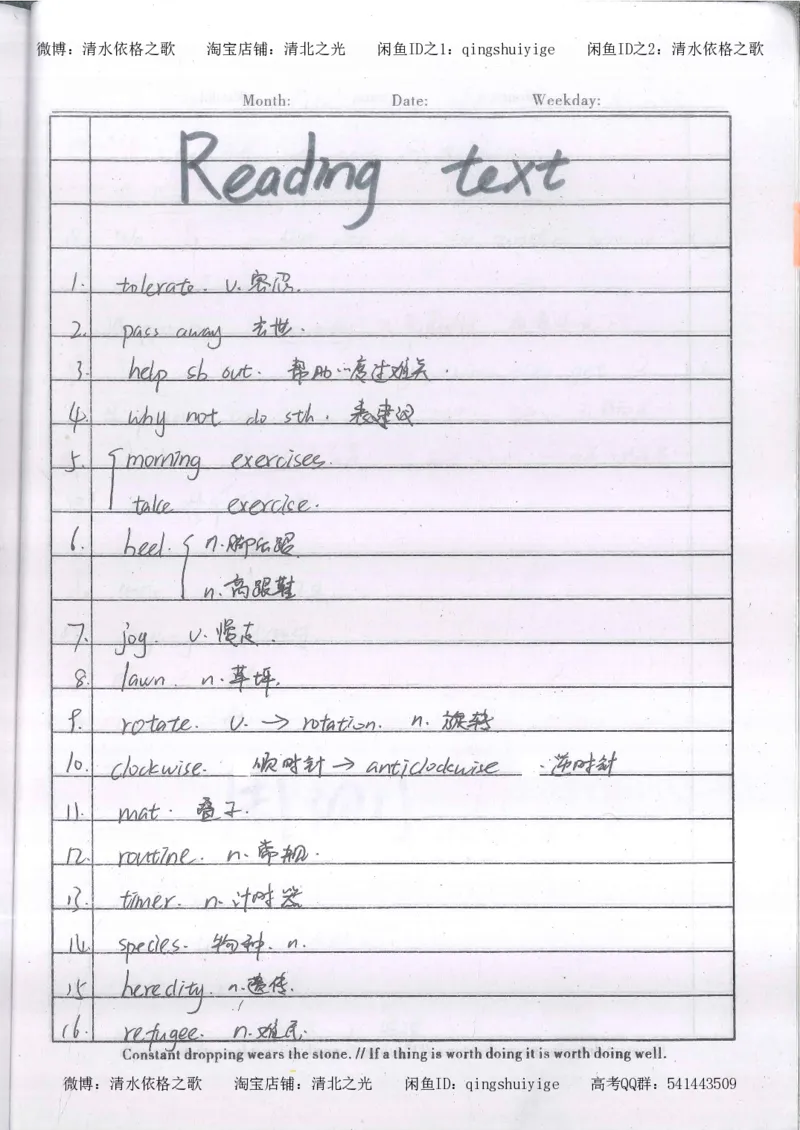 微博：清水依格之歌 淘宝店铺：清北之光 闲鱼ID之1：qingshuiyige 闲鱼ID之2：清水依格之歌
Month: Date: Weekday:
Reading text
1. tolerate. v. 容忍.
2. pass away 去世.
3. help sb out. 帮助…度过难关.
4. why not do sth. 表建议
5. { morning exercises.
take exercise.
6. heel. { n. 脚后跟
n. 高跟鞋
7. jog. v. 慢走
8. lawn. n. 草坪.
9. rotate. v. → rotation. n. 旋转
10. clockwise. 顺时针 → anticlockwise. 逆时针
11. mat. 垫子.
12. routine. n. 常规.
13. timer. n. 计时器
14. species. 物种. n.
15. heredity. n. 遗传.
16. refugee. n. 难民.
Constant dropping wears the stone. // If a thing is worth doing it is worth doing well.
微博：清水依格之歌 淘宝店铺：清北之光 闲鱼ID：qingshuiyige 高考QQ群：541443509